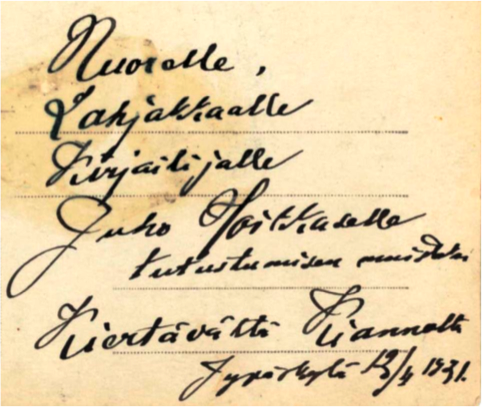 Nuorelle,
Lahjakkaalle
Kirjailijalle
Juho Hoikkaselle
tutustumisen muistoksi
Kiertävältä Kiannolta
Jyväskylä 1931.